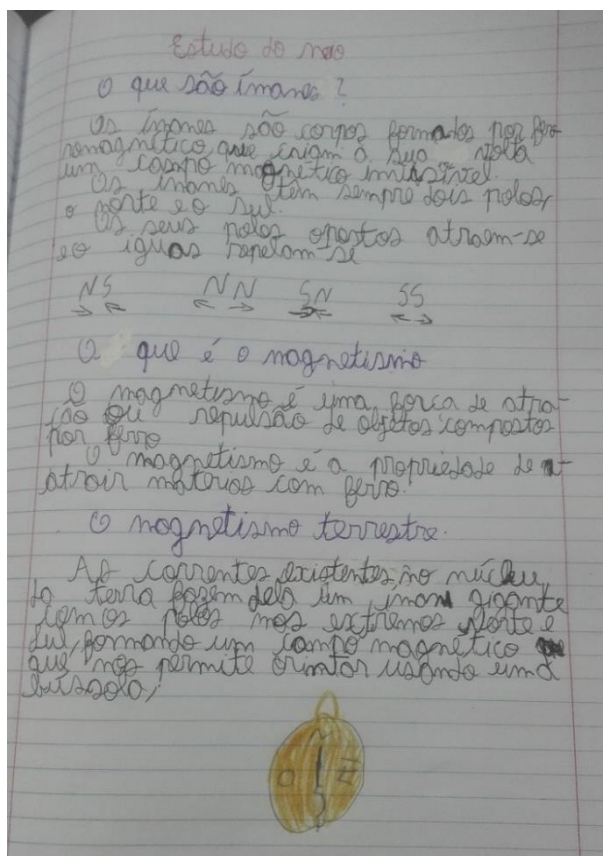 Estudo do meo
O que são ímanes?
Os ímanes são corpos formados por fer-
romagnético que criam à sua volta
um campo magnético invisível.
Os ímanes têm sempre dois polos,
o norte e o sul.
Os seus polos opostos atraem-se
e o iguas repelam-se
NS NN SN SS
O que é o magnetismo
O magnetismo é uma força de atra-
ção ou repulsão de objetos compostos
por ferro
O magnetismo é a propriedade de
atrair materios com ferro.
O magnetismo terrestre.
As correntes existentes no núcleu
da terra fazem dela um iman gigante
com os polos nos extremos Norte e
Sul, formando um campo magnético
que nos permite orintar usando uma
bússola,
N
O E
S